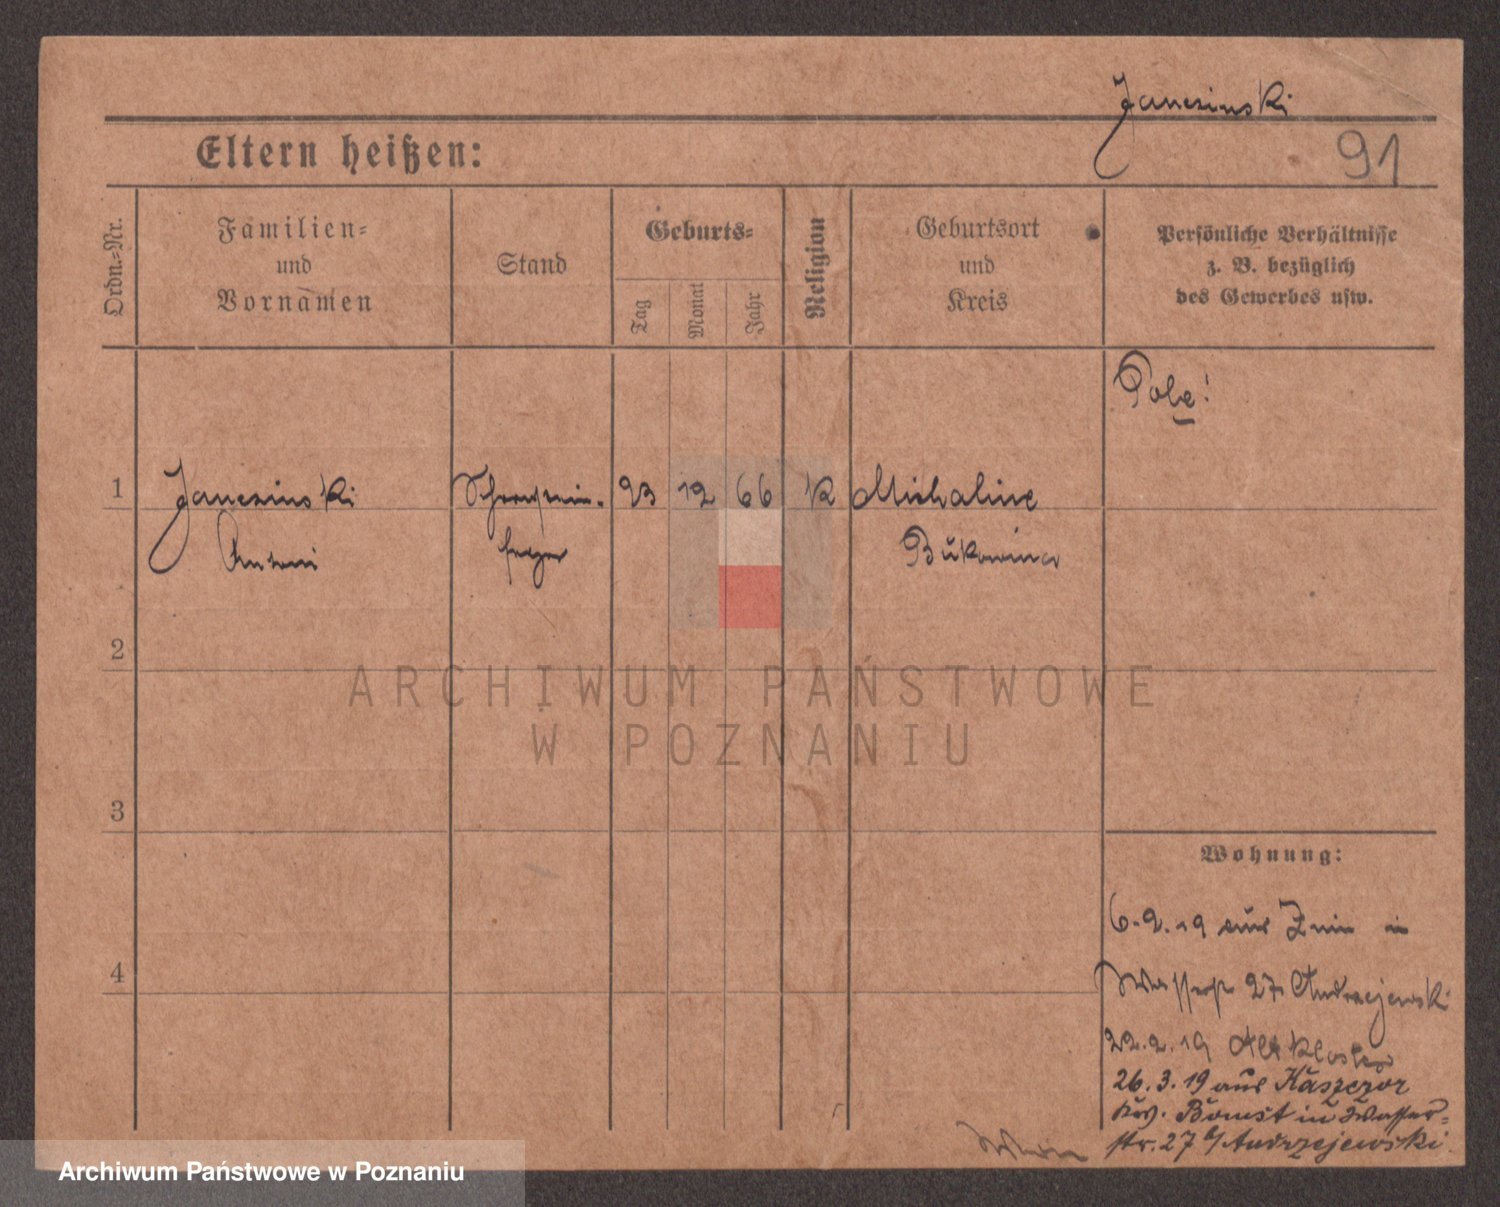 Janczinski
Eltern heißen:
91
Ordn.-Nr.
Familien-
und
Vornamen
Stand
Geburts-
Tag
Monat
Jahr
Religion
Geburtsort
und
Kreis
Persönliche Verhältnisse
z. B. bezüglich
des Gewerbes usw.
Pole!
1
Janczinski
Antoni
Schornstein-
feger
23
12
66
K
Michaline
Bukowina
2
3
4
Wohnung:
6.2.19 aus Znin in
Wasserstr 27 Andrzejewski
22.2.19 Alt Kloster
26.3.19 aus Kaszczor
Krs. Bomst in Wasser-
str. 27 b/Andrzejewski
ARCHIWUM PAŃSTWOWE
W POZNANIU
Archiwum Państwowe w Poznaniu